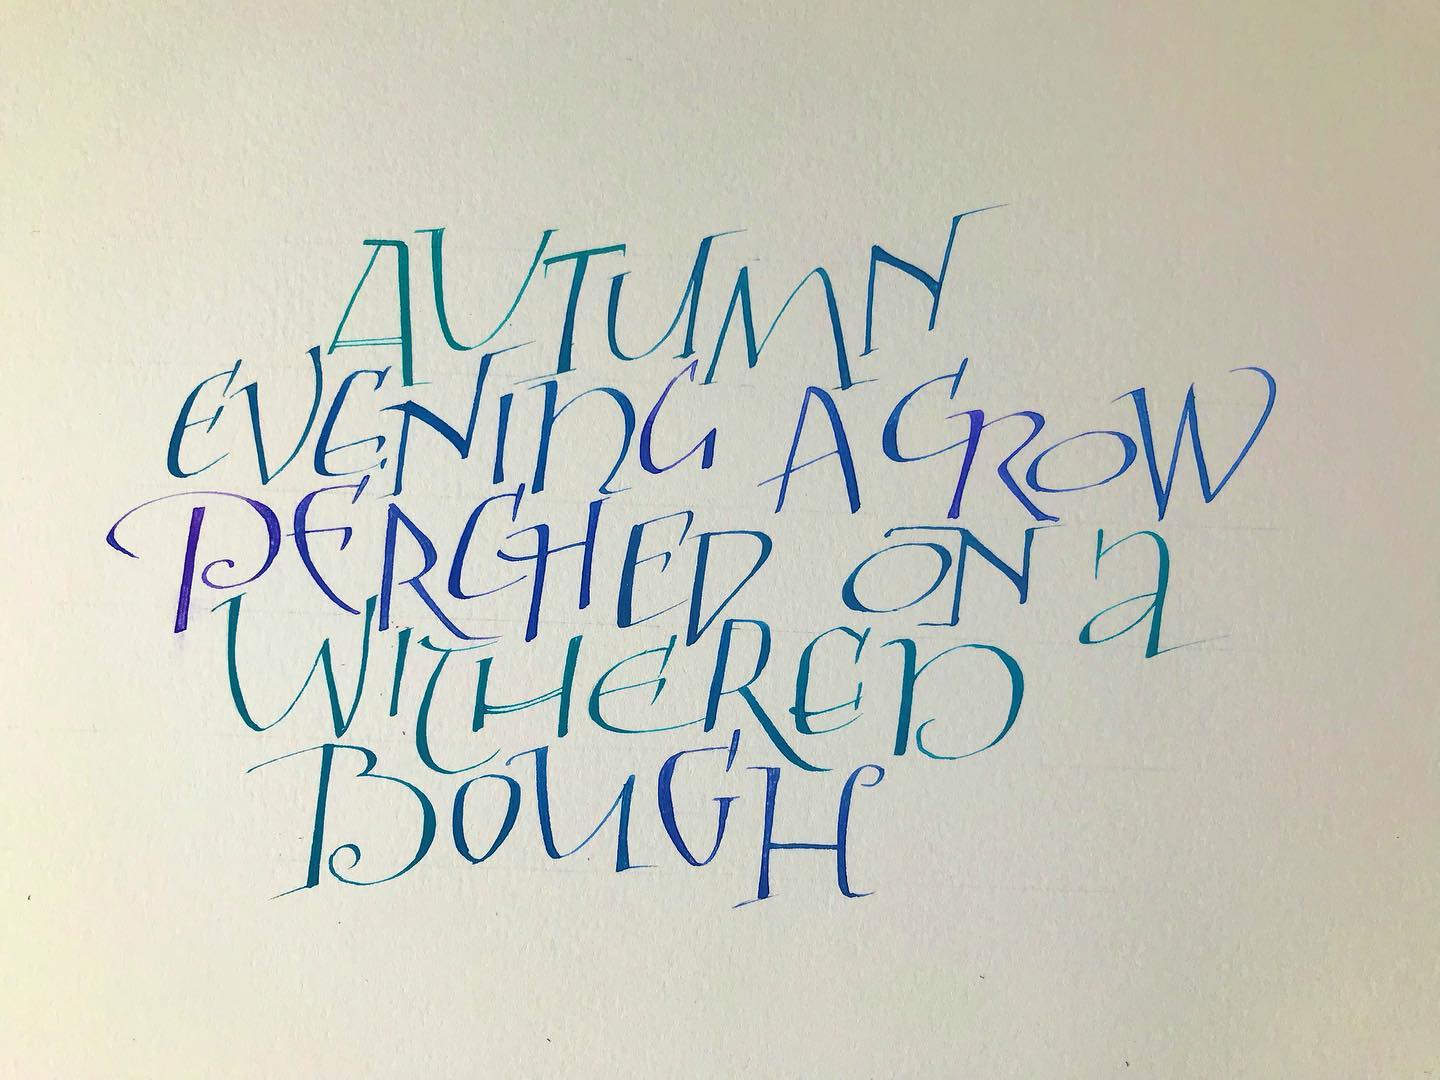 AUTUMN
EVENING A CROW
PERCHED ON a
WITHERED
BOUGH